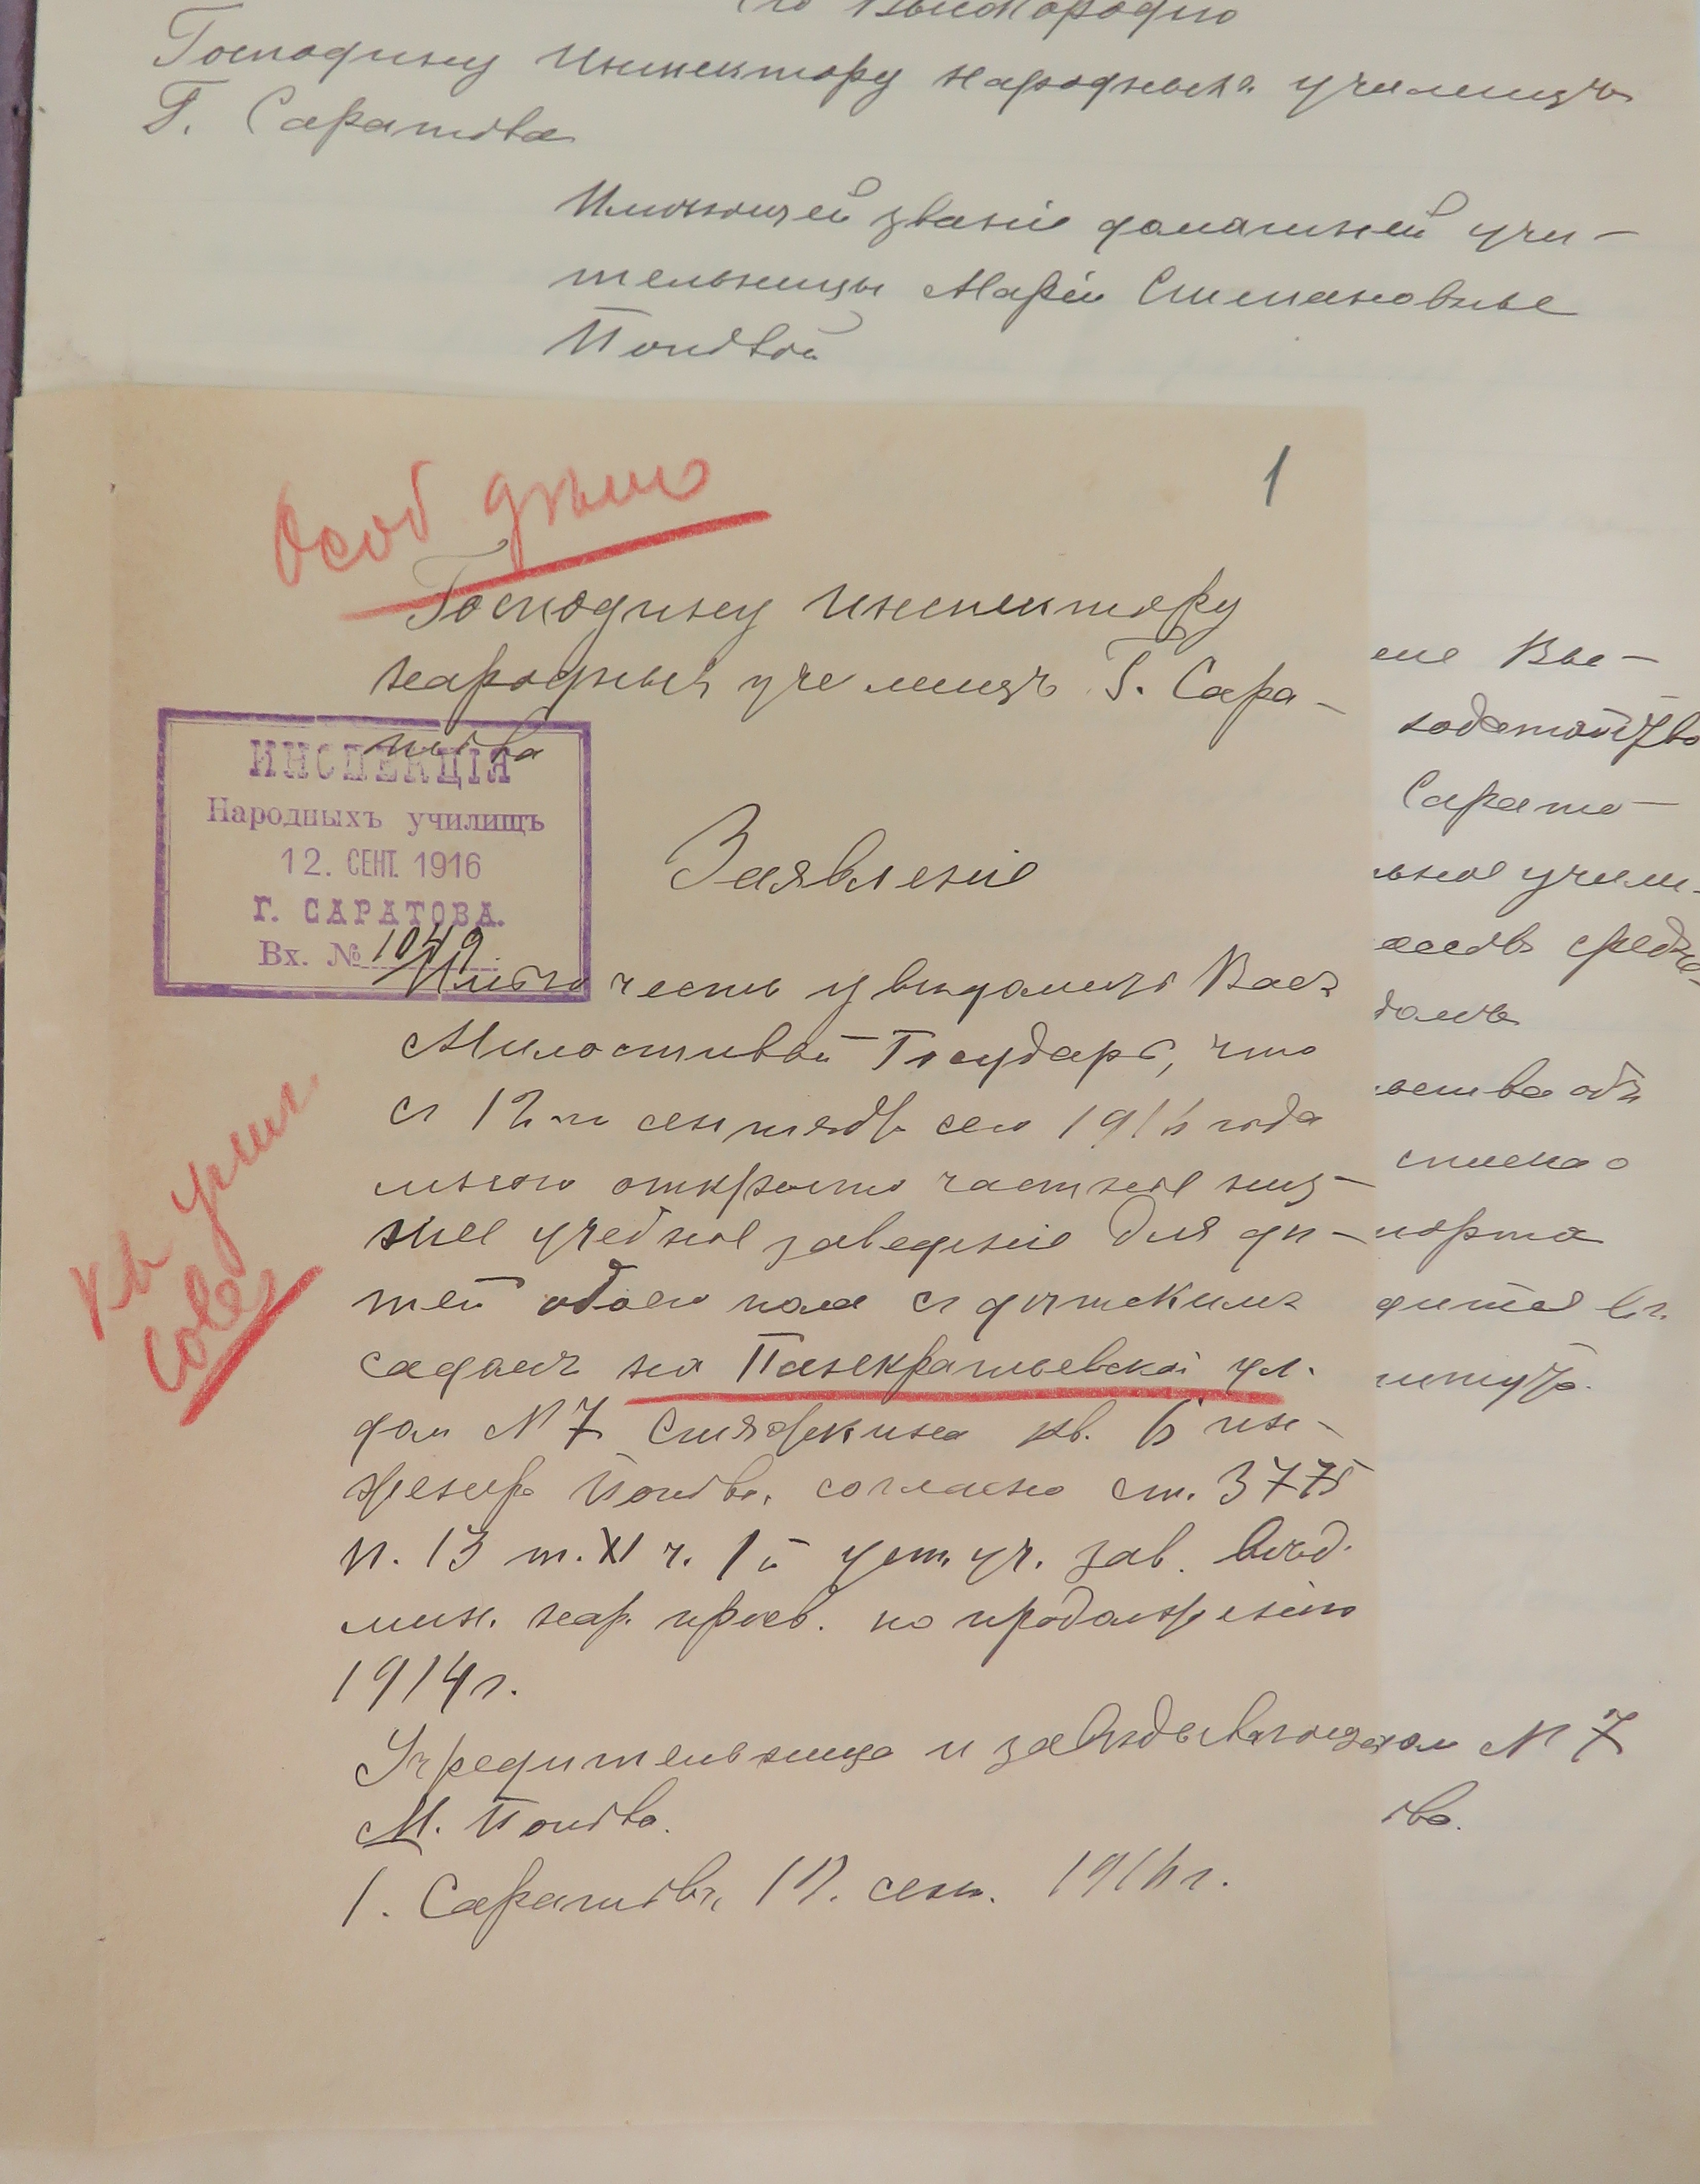 Его Высокородію
Господину Инспектору народныхъ училищъ
Г. Саратова
Имѣющей званіе домашней учи-
тельницы Маріи Степановны
Поповой
Особ дѣло
1
Господину Инспектору
народныхъ училищъ Г. Сара-
това
ИНСПЕКЦІЯ
Народныхъ училищъ
12. СЕНТ. 1916
Г. САРАТОВА.
Вх. № 1049
Заявленіе
Имѣю честь увѣдомить Васъ
Милостивый Государь, что
съ 12го сентября сего 1916 года
мною открыто частное низ-
шее учебное заведеніе для дѣ-
тей обоего пола съ дѣтскимъ
садомъ на Панкратьевской ул.
дом N 7 кв. 6 ин-
женера Попова, согласно ст. 3775
п. 13 т. XI ч. 1й уст. уч. зав. вѣд.
мин. нар. просв. по продолженію
1914 г.
Учредительница и завѣдывающая
М. Попова.
Г. Саратовъ, 12. сент. 1916 г.
Къ учил
сове
ше Вы-
ходатайство
Сарато-
ьное учили-
домъ
ства объ
списка о
порта
дится въ
дом N 7
ова.